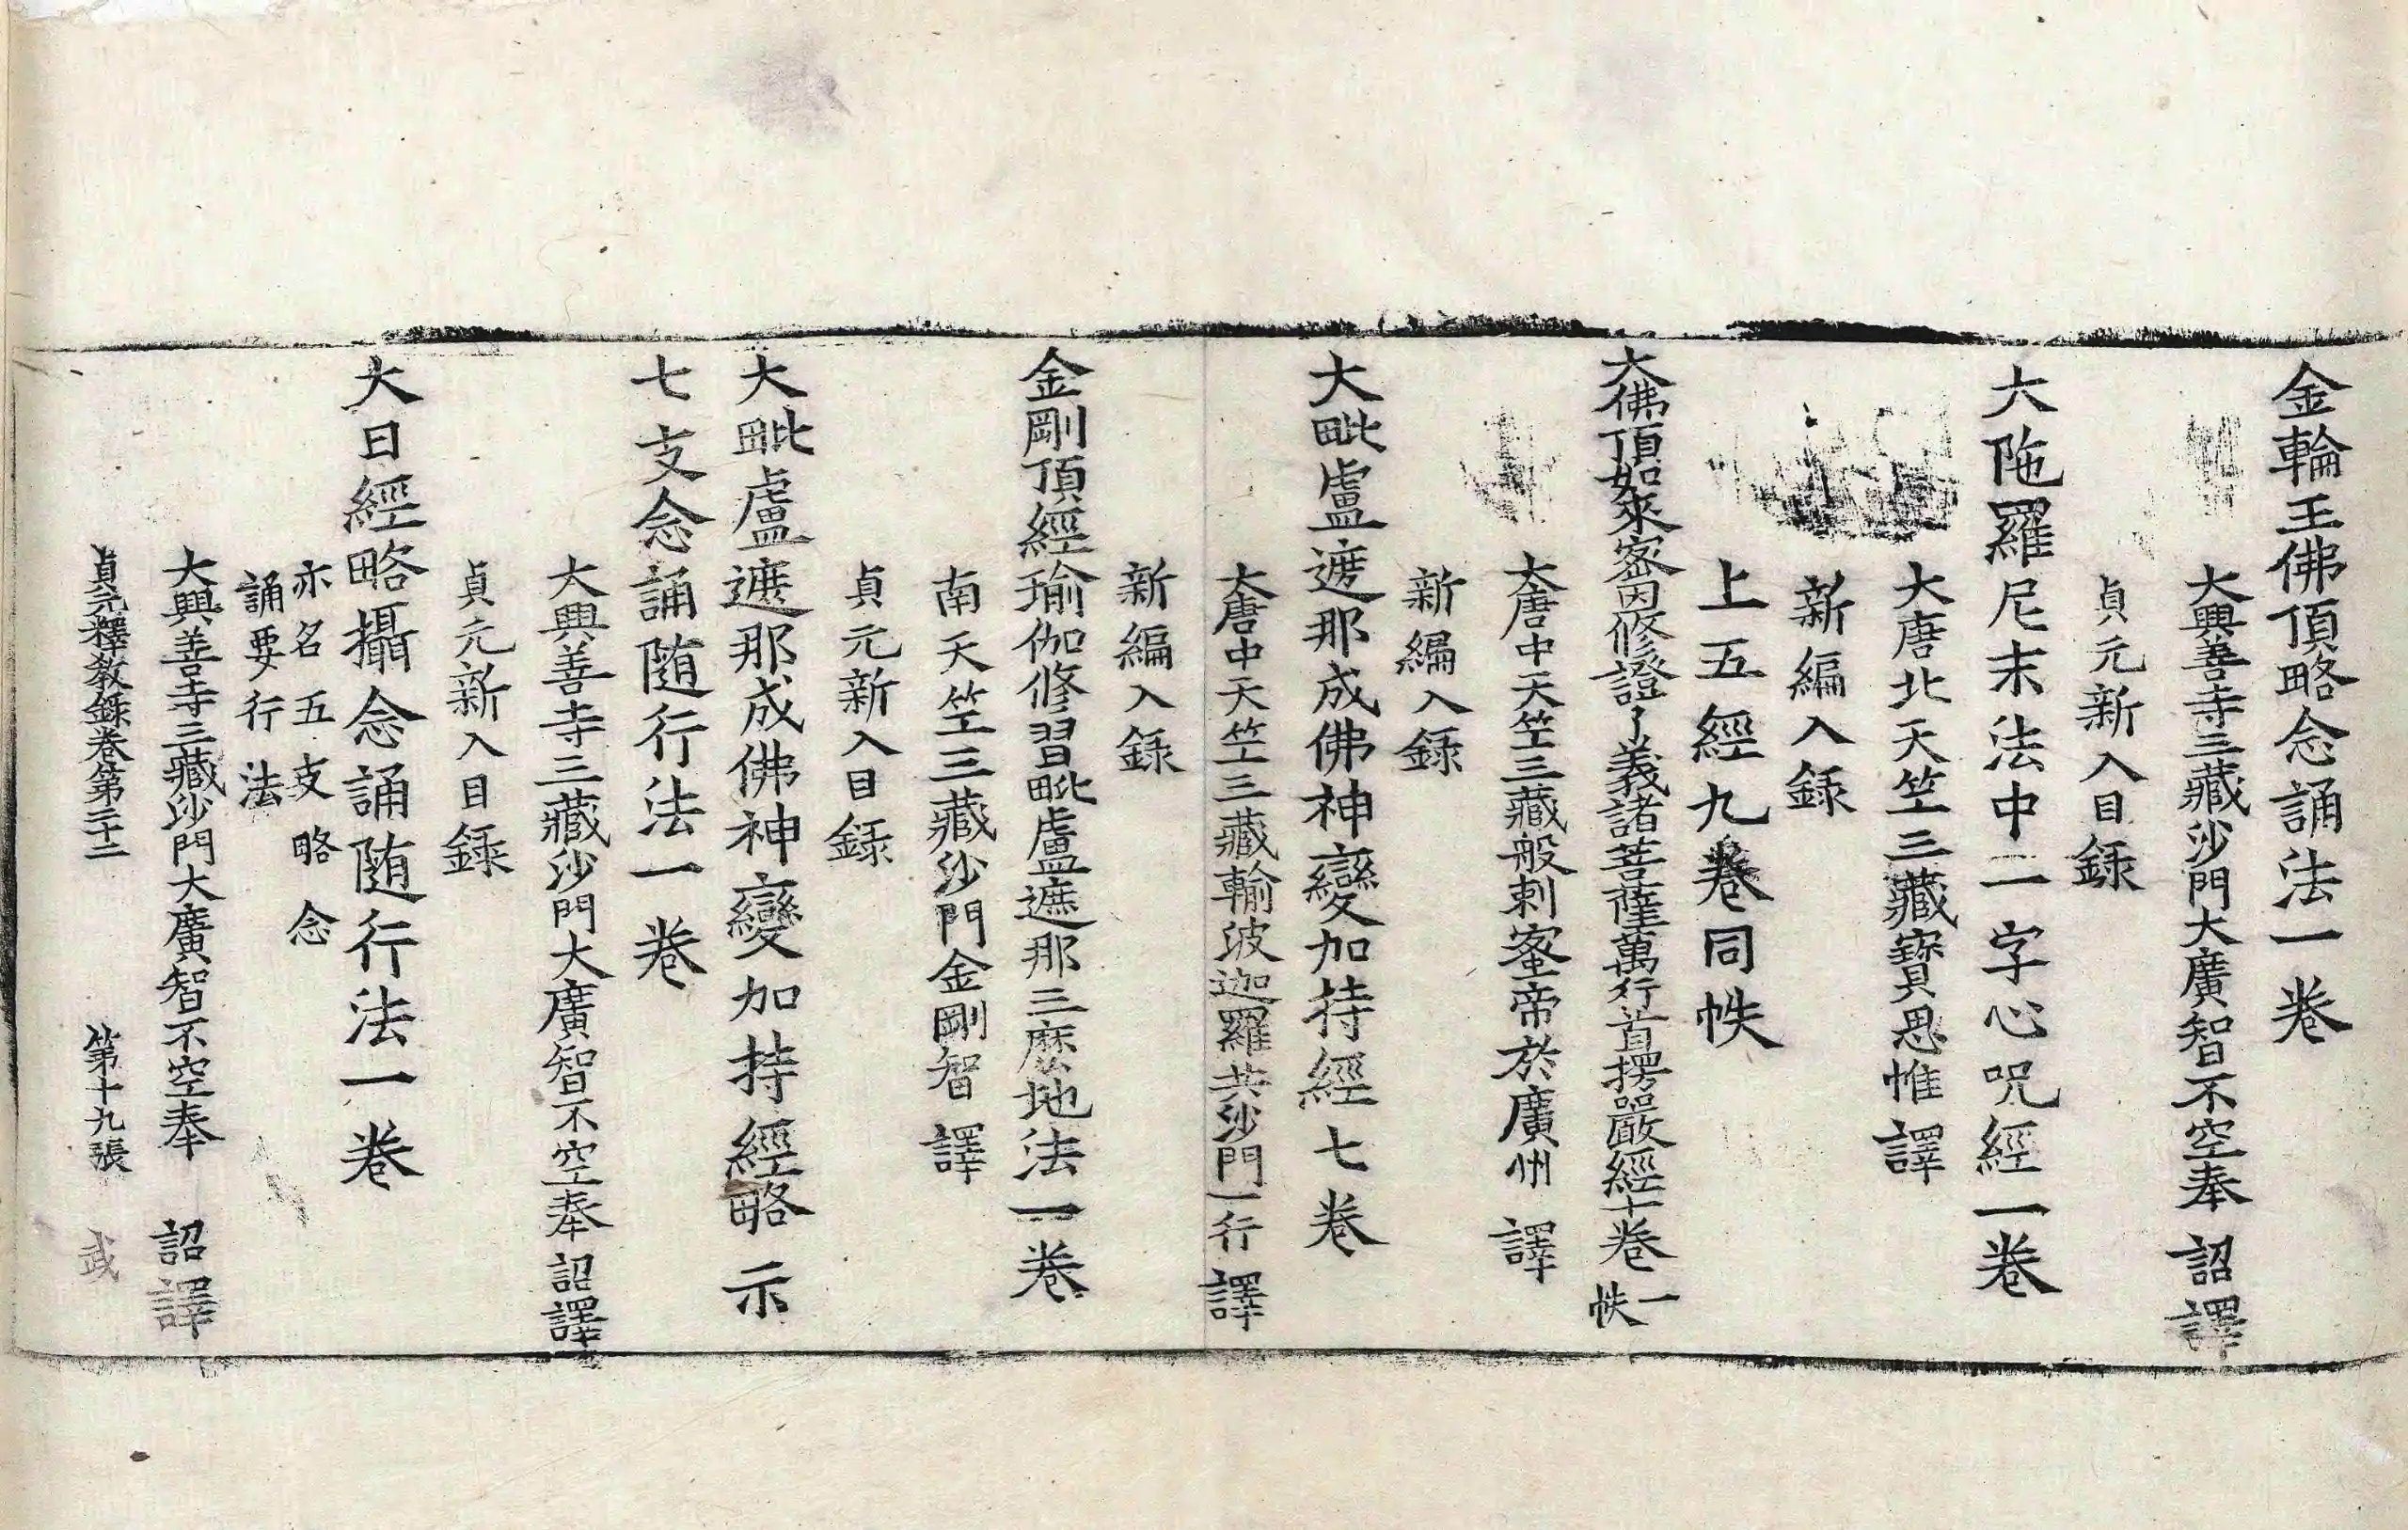 金輪王佛頂略念誦法一卷
大興善寺三藏沙門大廣智不空奉 詔譯
貞元新入目録
大陁羅尼末法中一字心呪經一卷
大唐北天竺三藏寶思惟 譯
新編入録
上五經九卷同帙
大佛頂如來密因修證了義諸菩薩萬行首楞嚴經十卷 一帙
大唐中天竺三藏般剌蜜帝於廣州 譯
新編入録
大毗盧遮那成佛神變加持經七卷
大唐中天竺三藏輸波迦羅共沙門一行 譯
新編入録
金剛頂經瑜伽修習毗盧遮那三麽地法一卷
南天竺三藏沙門金剛智 譯
貞元新入目録
大毗盧遮那成佛神變加持經略示
七支念誦随行法一卷
大興善寺三藏沙門大廣智不空奉 詔譯
貞元新入目録
大日經略攝念誦随行法一卷
亦名五支略念
誦要行法
大興善寺三藏沙門大廣智不空奉 詔譯
貞元釋教録卷第二十二 第十九張